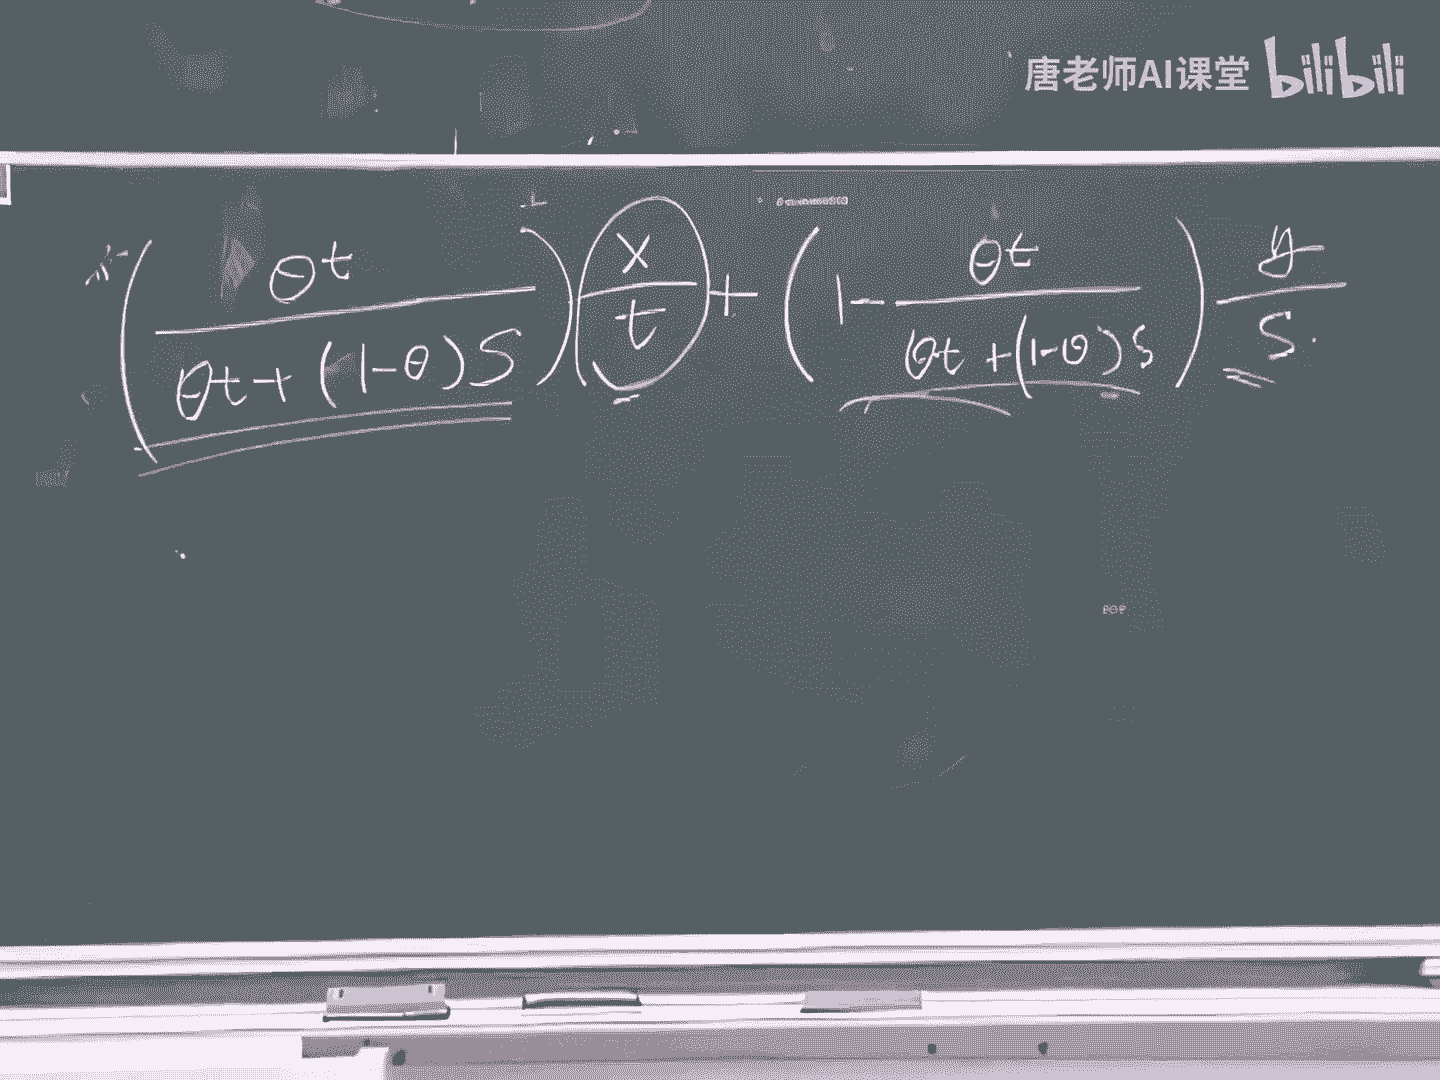 唐老师AI课堂 bilibili
(θt / (θt + (1-θ)S)) (x / t) + (1 - θt / (θt + (1-θ)S)) y / S.